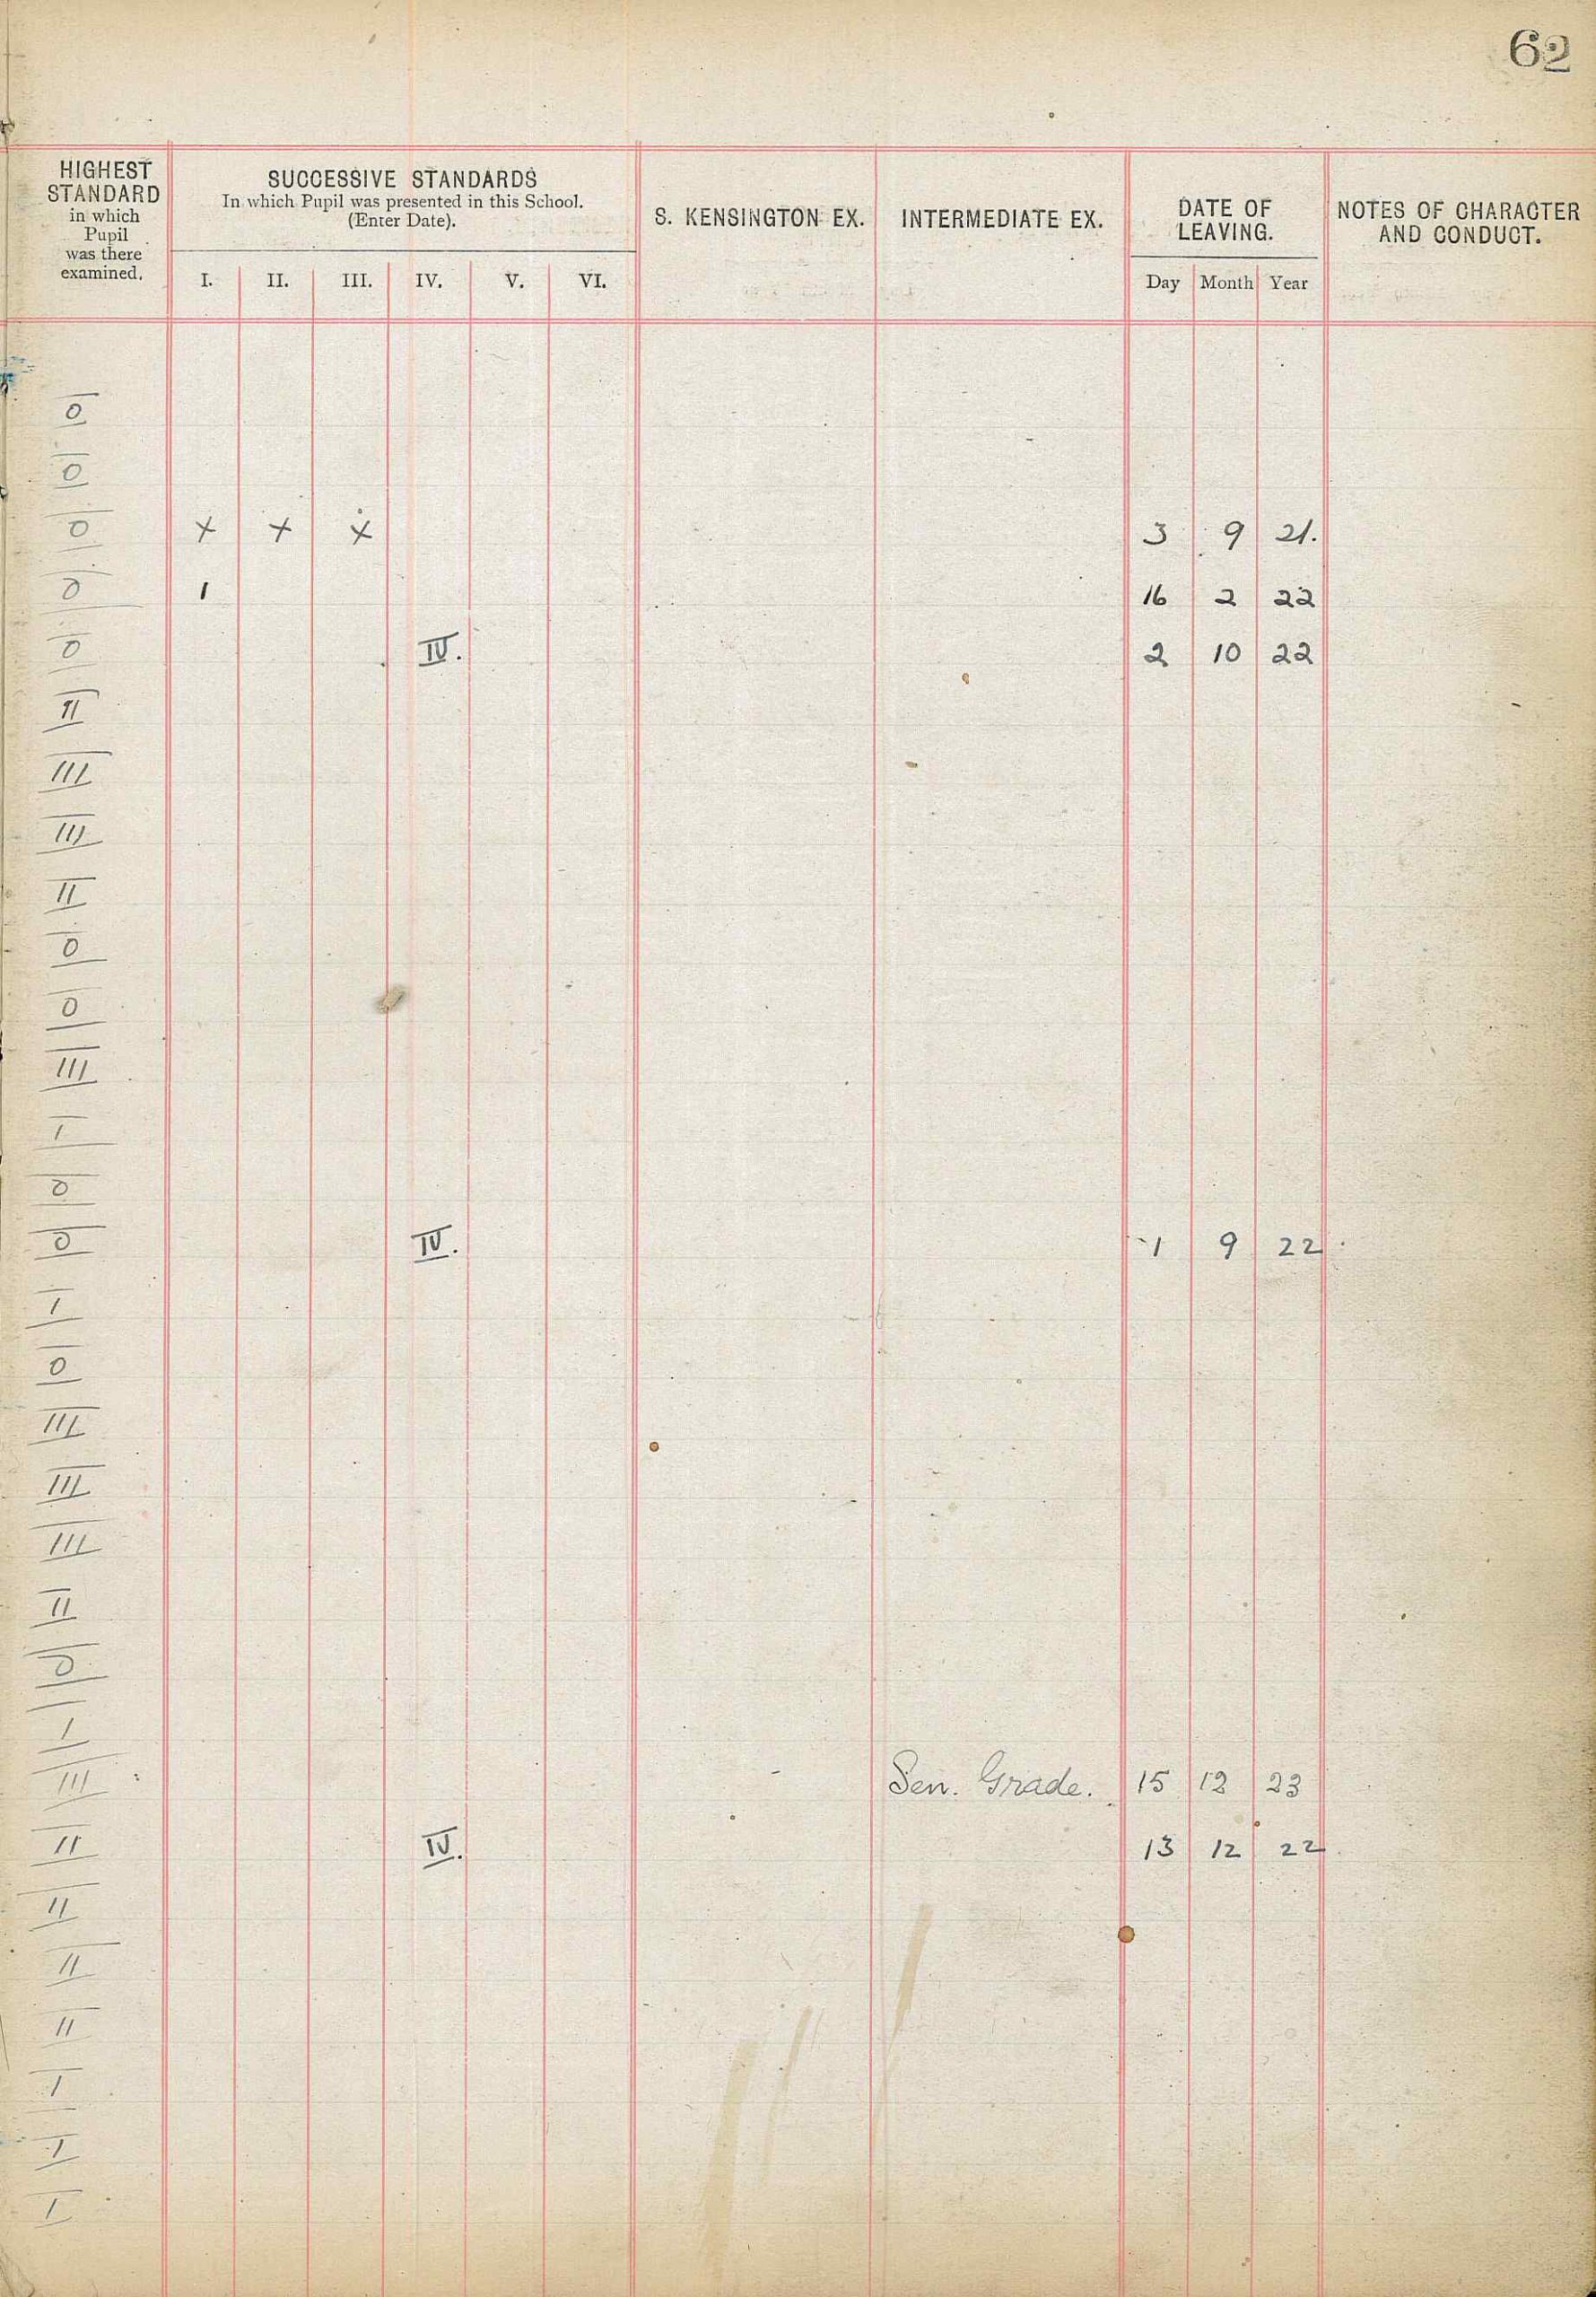 62
HIGHEST STANDARD in which Pupil was there examined.
SUCCESSIVE STANDARDS
In which Pupil was presented in this School.
(Enter Date).
I. II. III. IV. V. VI.
S. KENSINGTON EX.
INTERMEDIATE EX.
DATE OF LEAVING.
Day Month Year
NOTES OF CHARACTER AND CONDUCT.
0
0
0 x x x 3 9 21.
0 1 16 2 22
0 IV. 2 10 22
II
III
III
II
0
0
III
I
0
0 IV. 1 9 22
I
0
III
III
III
II
0
I
III Sen. Grade. 15 12 23
II IV. 13 12 22
II
II
II
I
I
I